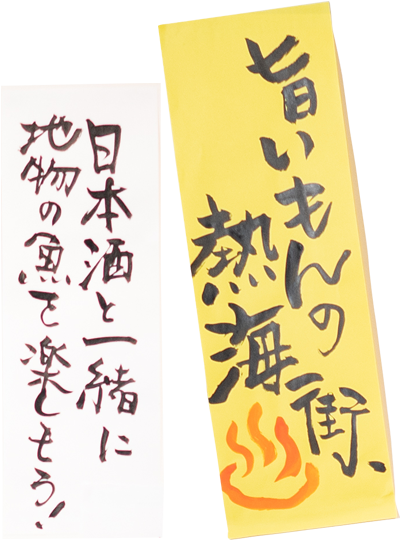 旨いもんの街、
熱海
日本酒と一緒に
地物の魚を楽しもう!